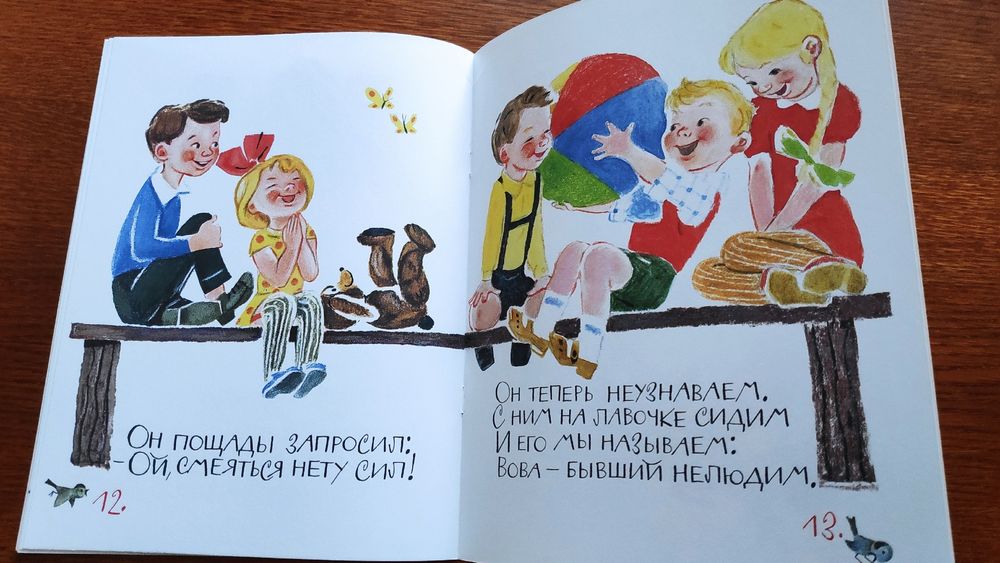 Он пощады запросил:
– Ой, смеяться нету сил!
12.
Он теперь неузнаваем.
С ним на лавочке сидим
И его мы называем:
Вова – бывший нелюдим.
13.